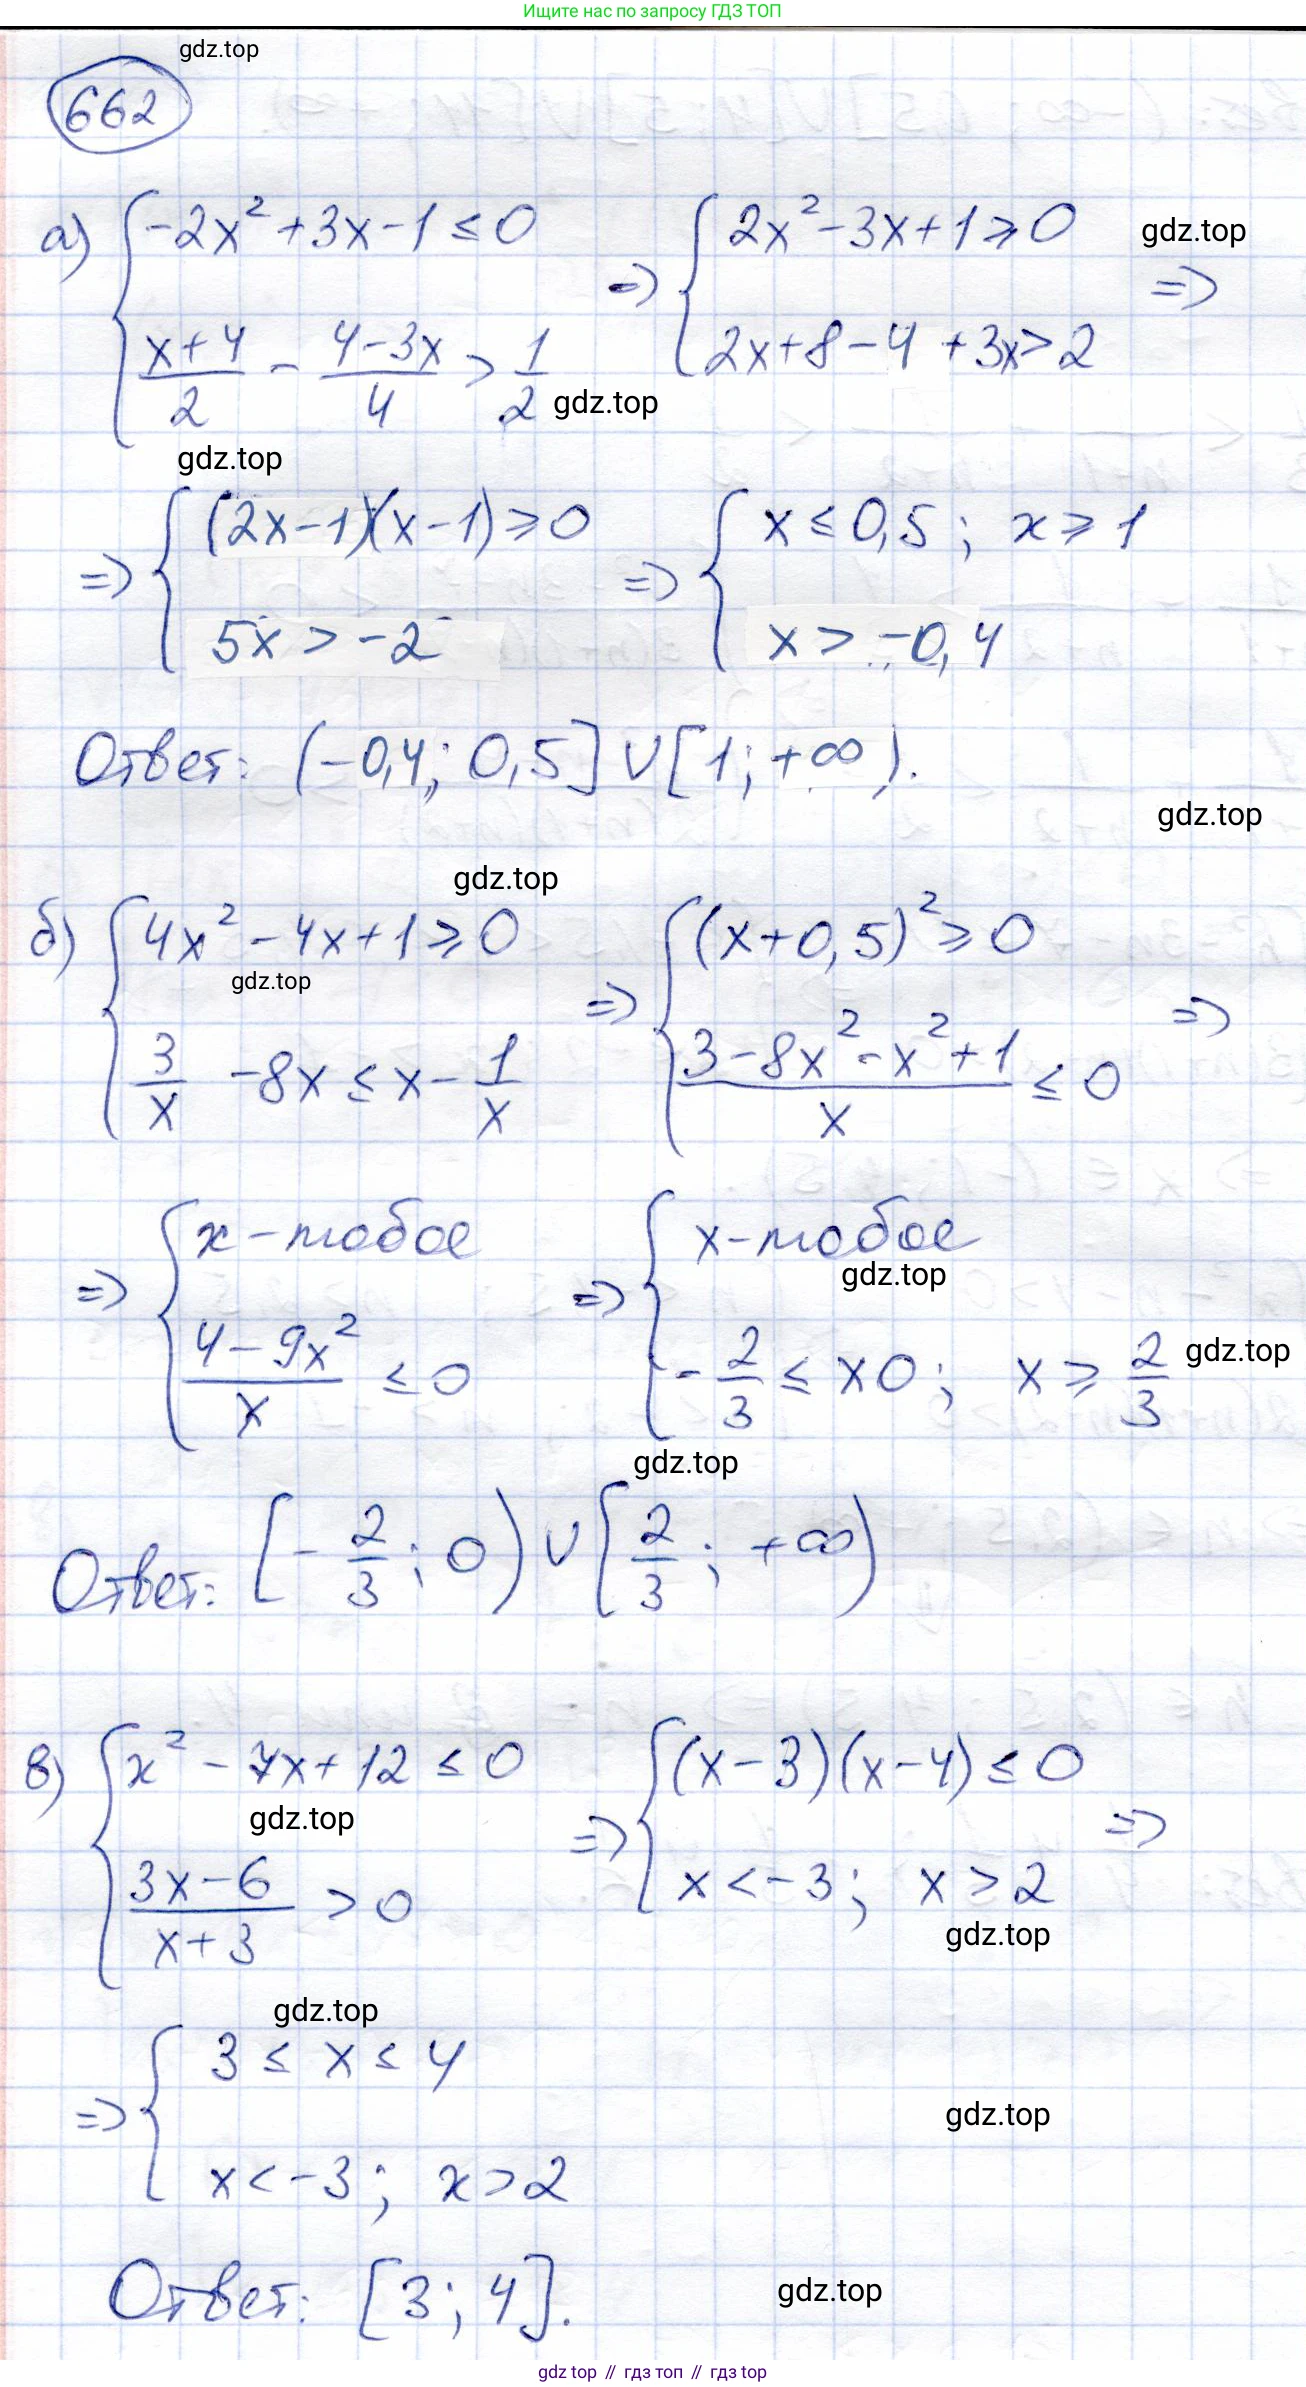 Ищите нас по запросу ГДЗ ТОП
gdz.top
662
а) { -2x² + 3x - 1 ≤ 0 ; (x+4)/2 - (4-3x)/4 > 1/2 ⇒ { 2x² - 3x + 1 ⩾ 0 ; 2x + 8 - 4 + 3x > 2 ⇒
gdz.top
gdz.top
gdz.top
⇒ { (2x-1)(x-1) ⩾ 0 ; 5x > -2 ⇒ { x ≤ 0,5; x ⩾ 1 ; x > -0,4
Ответ: (-0,4; 0,5] ∪ [1; +∞).
gdz.top
gdz.top
б) { 4x² - 4x + 1 ⩾ 0 ; 3/x - 8x ≤ x - 1/x ⇒ { (x+0,5)² ⩾ 0 ; (3 - 8x² - x² + 1)/x ≤ 0 ⇒
gdz.top
⇒ { x - любое ; (4 - 9x²)/x ≤ 0 ⇒ { x - любое ; -2/3 ≤ x 0; x ⩾ 2/3
gdz.top
gdz.top
gdz.top
Ответ: [-2/3; 0) ∪ [2/3; +∞)
в) { x² - 7x + 12 ≤ 0 ; (3x-6)/(x+3) > 0 ⇒ { (x-3)(x-4) ≤ 0 ; x < -3; x > 2 ⇒
gdz.top
gdz.top
gdz.top
⇒ { 3 ≤ x ≤ 4 ; x < -3; x > 2
gdz.top
Ответ: [3; 4].
gdz.top
gdz top // гдз топ // гдз top